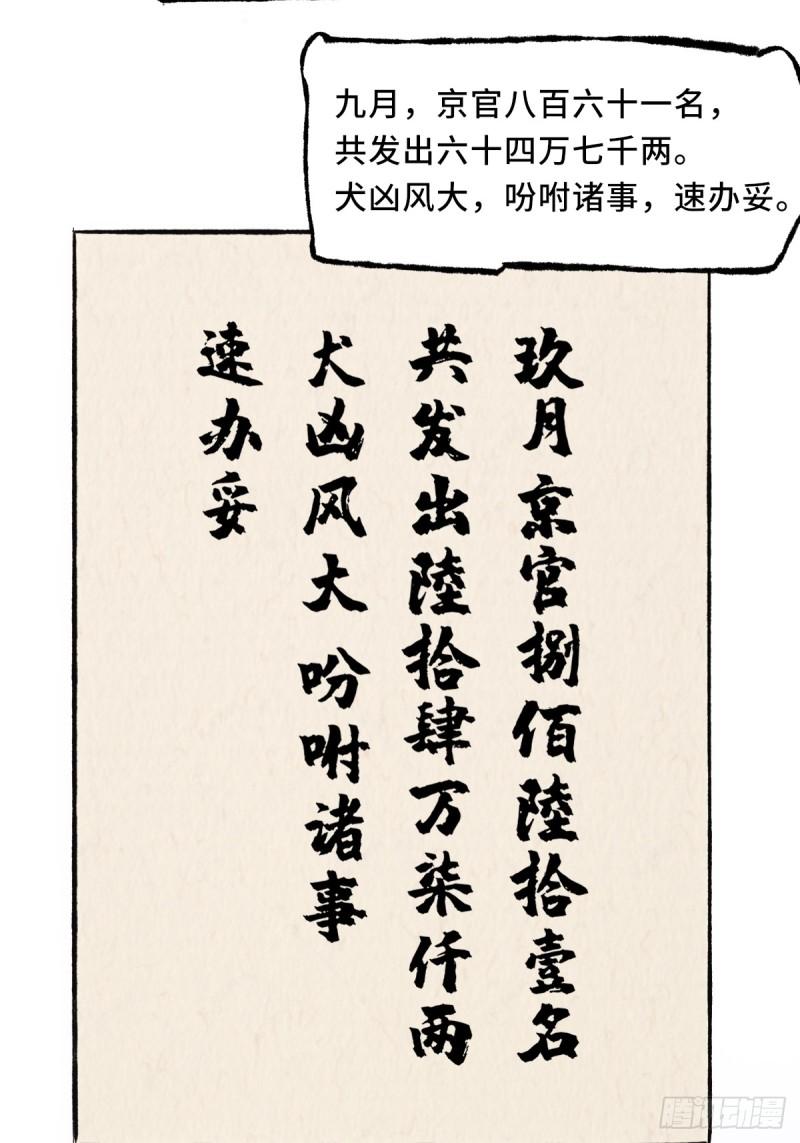 九月，京官八百六十一名，
共发出六十四万七千两。
犬凶风大，吩咐诸事，速办妥。
玖月京官捌佰陸拾壹名
共发出陸拾肆万柒仟两
犬凶风大 吩咐诸事
速办妥
腾讯动漫